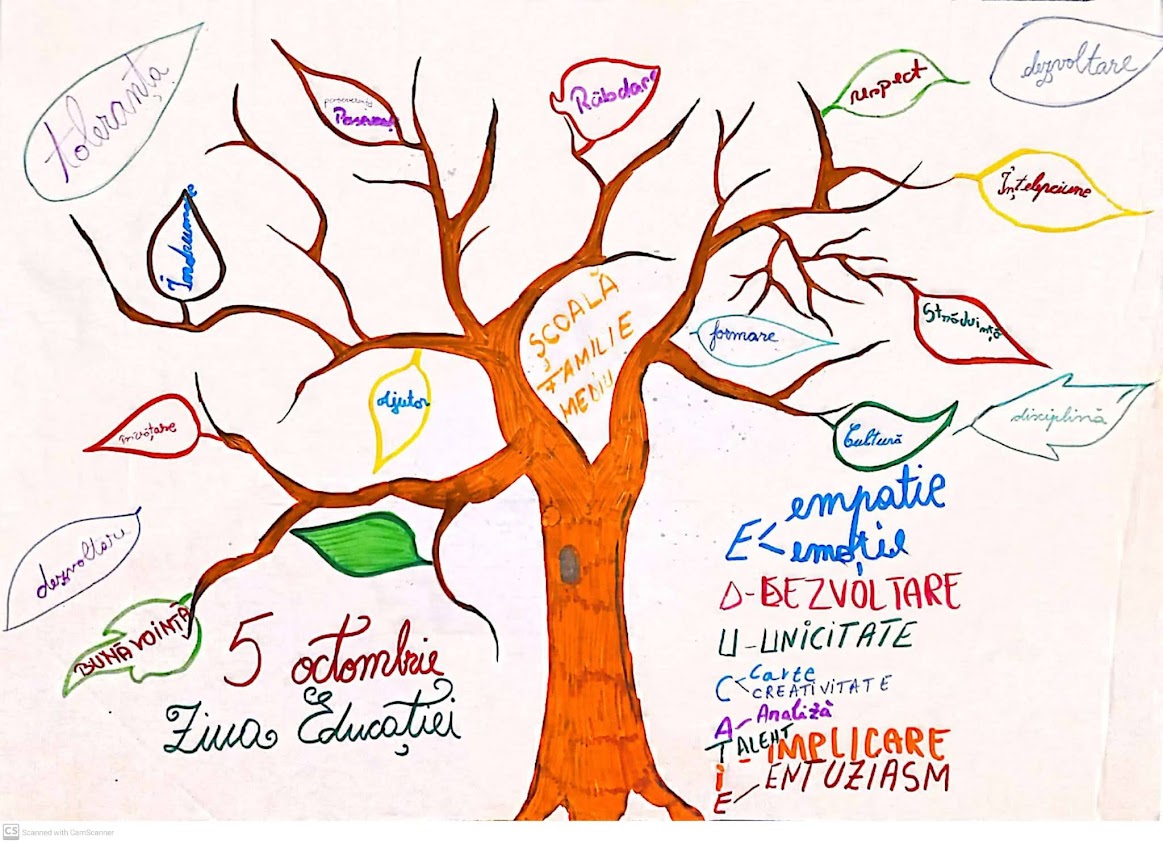 toleranța
perseverența
Perseverenț
Răbdare
respect
dezvoltare
Înțelepciune
Îndrumare
ȘCOALĂ
FAMILIE
MEDIU
formare
Străduință
ajutor
învățare
Cultură
disciplină
dezvoltare
BUNĂVOINȚĂ
5 octombrie
Ziua Educației
E < empatie
emoție
D - DEZVOLTARE
U - UNICITATE
C < Carte
CREATIVITATE
A - Analiză
TALENT
I - IMPLICARE
E - ENTUZIASM
CS Scanned with CamScanner